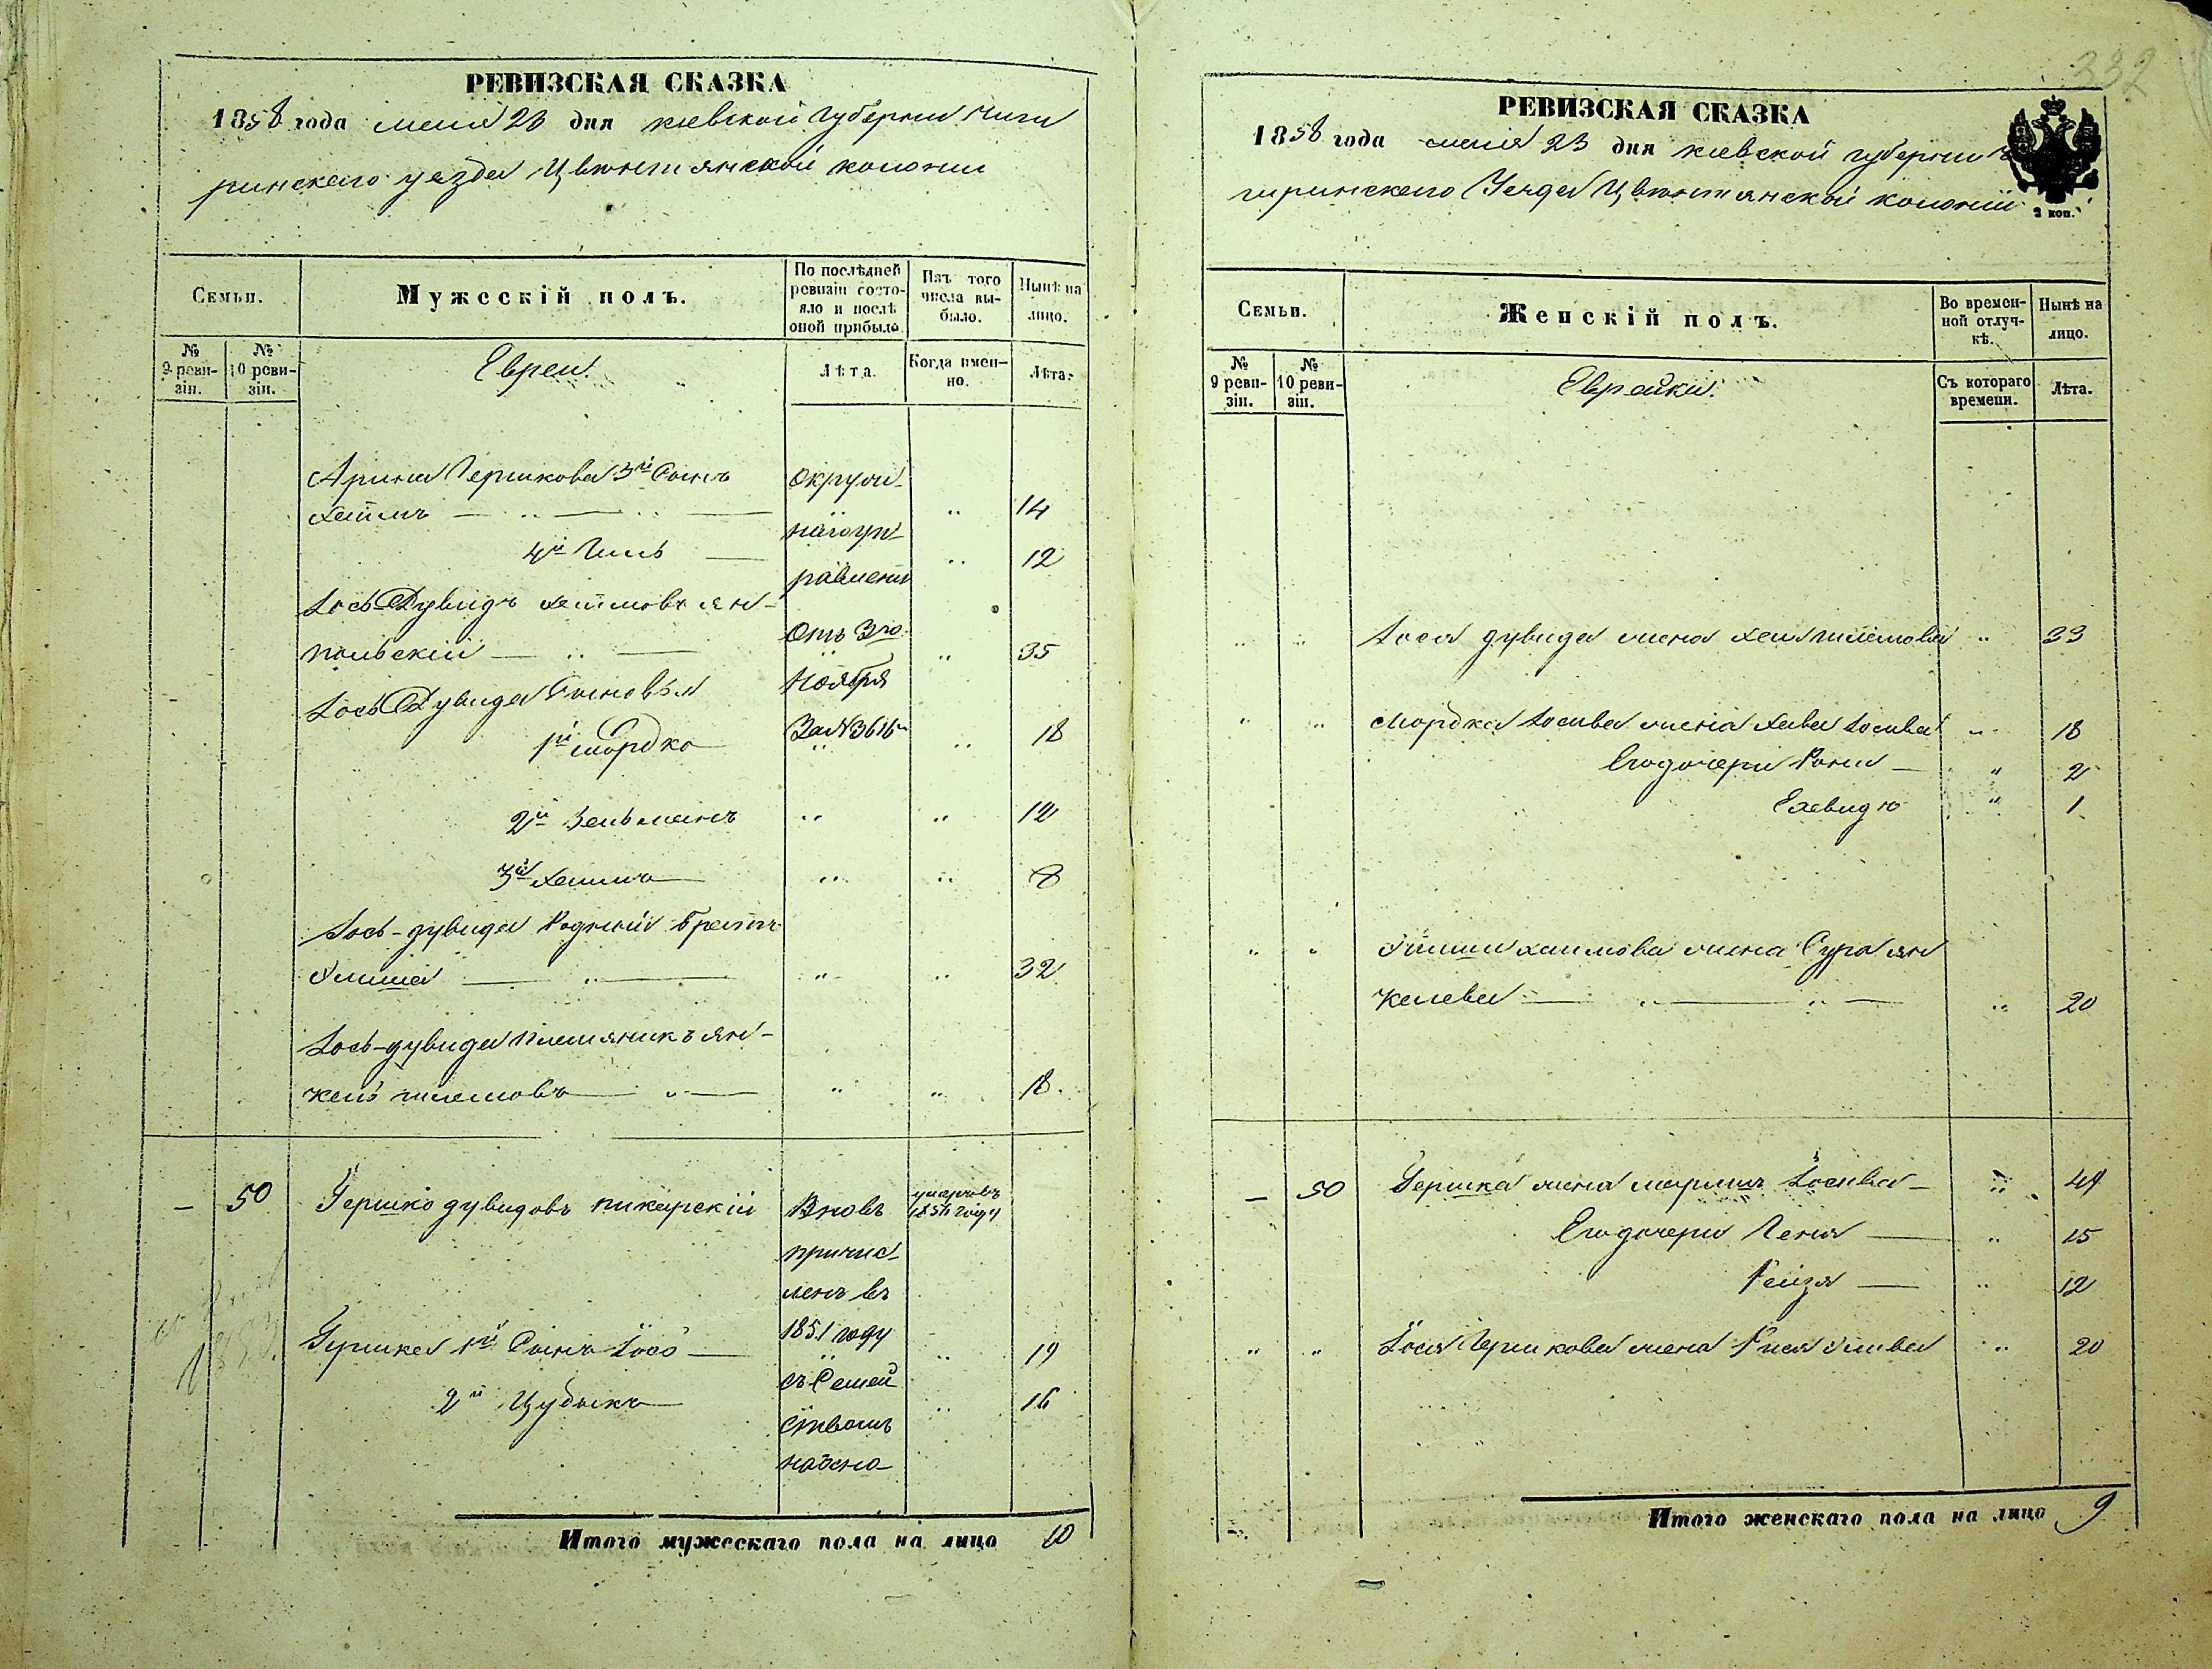 332
РЕВИЗСКАЯ СКАЗКА
1858 года мая 23 дня киевской Губернии Чиги
ринскаго уезда Цвентянской колонии
Семьи.
Мужескій полъ.
По послѣдней ревизіи состояло и послѣ оной прибыло.
Изъ того числа выбыло.
Нынѣ на лицо.
№ 9 ревизіи.
№ 10 ревизіи.
Евреи.
Лѣта.
Когда именно.
Лѣта.
Арина Гершкова 3й Сынъ
Хаимъ 14
4й 12
Іось Дувидъ Хаимовъ Ян-
польскій 35
Іось Дувида Сыновья
1й Мордко 18
2й Зельманъ 12
3й Хаимъ 8
Іось-дувида Родный Братъ
32
Іось-дувида племяникъ Ян-
кель шлемовъ 18.
Окруж-
наго уп-
равления
Отъ 3го
Ноября
За №
– 50 Гершко дувидовъ пикарскій
Вновь
причис-
ленъ въ
1851 году
съ Семей
ствомъ
умеръ въ
1856 году
Гершка 1й Сынъ Іось 19
2й Цудыкъ 16
Итого мужескаго пола на лицо 10
РЕВИЗСКАЯ СКАЗКА
1858 года мая 23 дня киевской губернии
гиринскаго Уезда Цвентянской колоніи
2 коп.
Семьи.
Женскій полъ.
Во временной отлучкѣ.
Нынѣ на лицо.
№ 9 ревизіи.
№ 10 ревизіи.
Еврейки.
Съ котораго времени.
Лѣта.
Іося дувида жена Хая шлемова 33
Мордка Іосива жена Хава Іосива 18
Его дочери 2
1
хаимова жена Сура Ян
келева 20
– 50 Гершка жена Іосива 49
Его дочери Геня 15
Рейзя 12
Іося Гершкова жена 20
Итого женскаго пола на лицо 9